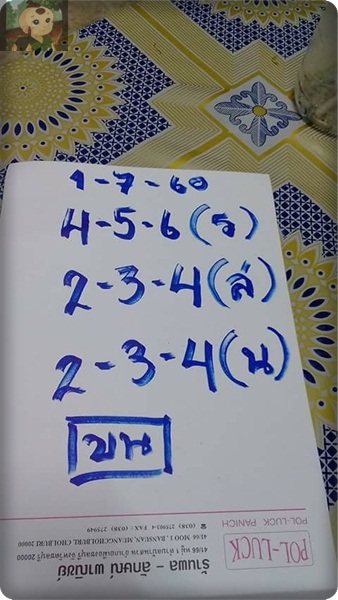 1-7-60
4-5-6(ร)
2-3-4(ล่)
2-3-4(น)
บน
POL-LUCK
POL-LUCK PANICH
ร้านพล - ลักษณ์ พาณิชย์
41/66 หมู่ 1 ตำบลบ้านสวน อำเภอเมืองชลบุรี จังหวัดชลบุรี 20000
41/66 MOO 1, BANSUAN, MEANGCHOLBURI, CHOLBURI 20000
☎ (038) 275903-4 FAX : (038) 275949